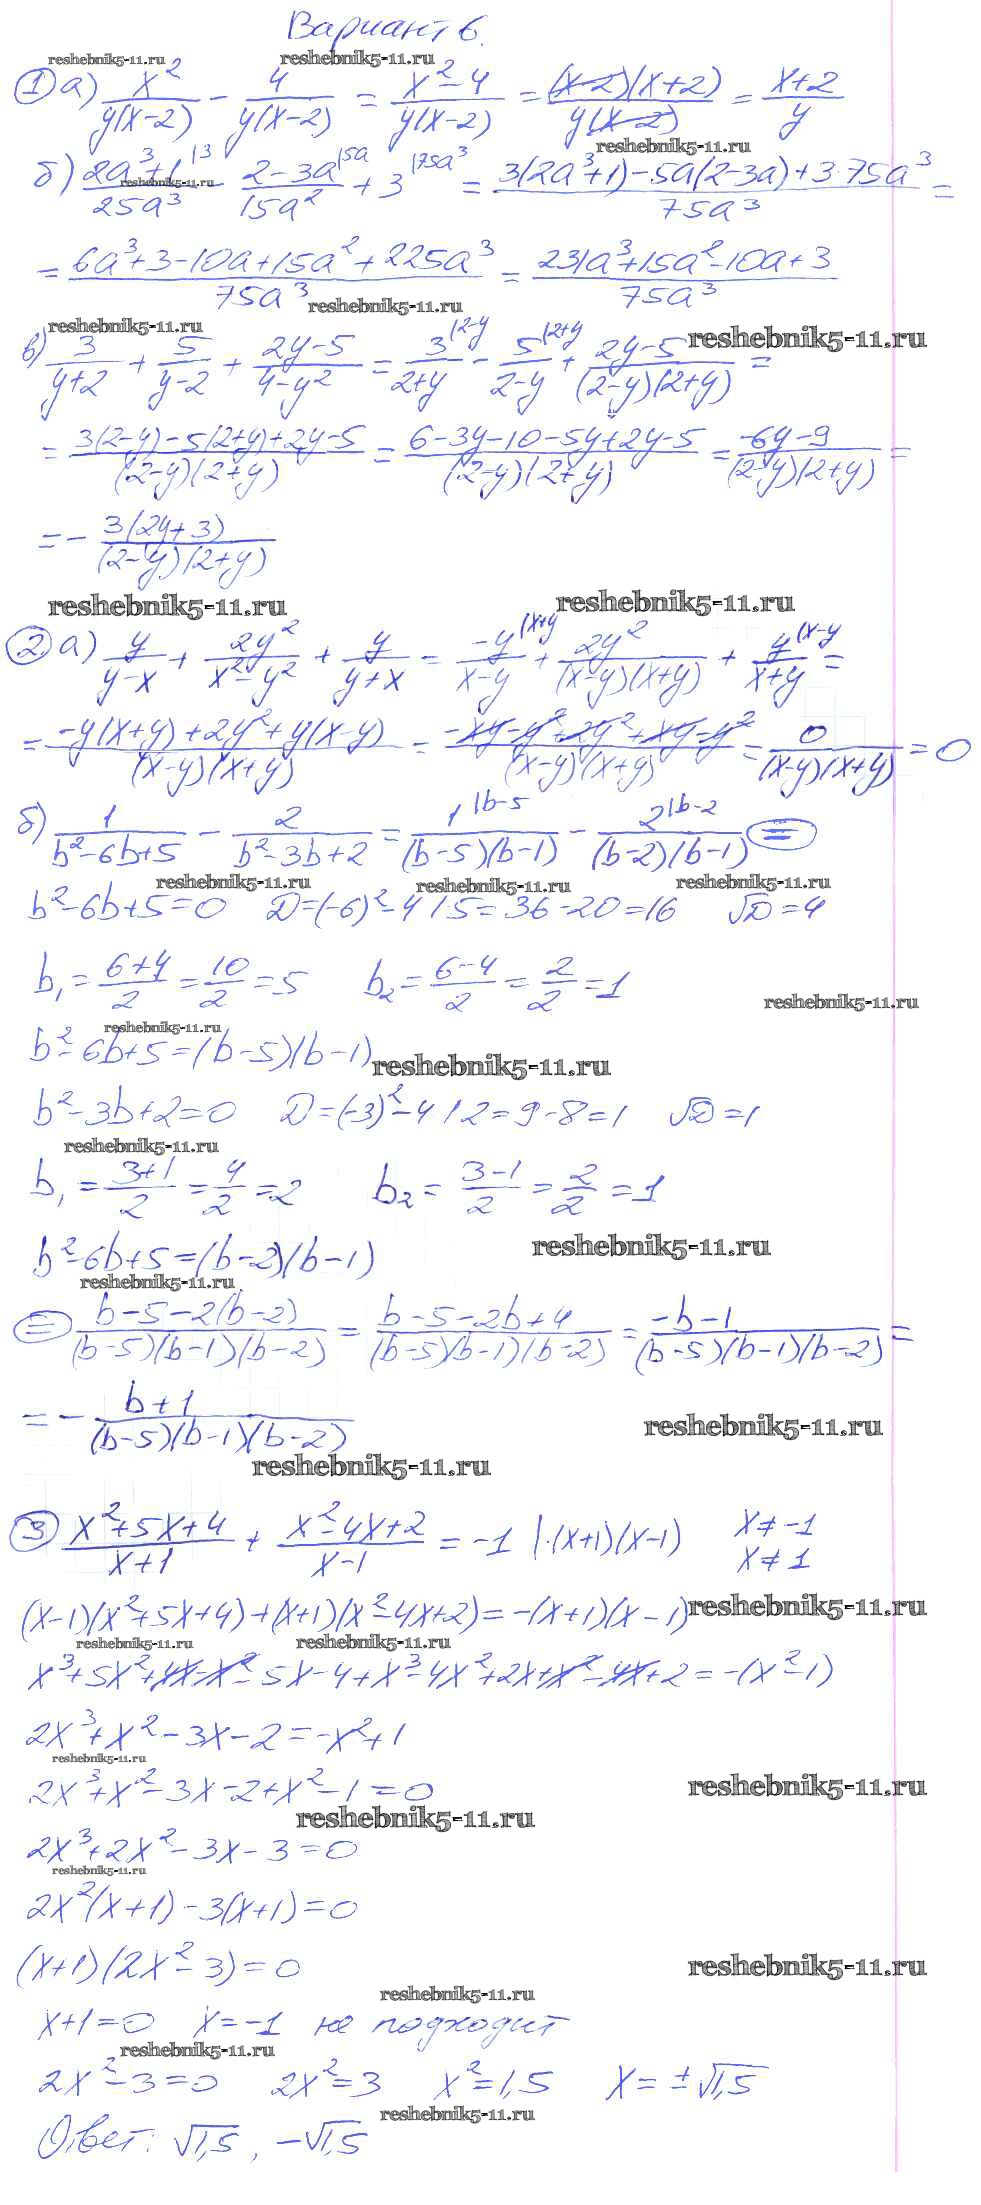 Вариант 6.
reshebnik5-11.ru reshebnik5-11.ru
① а) x²/y(x-2) - 4/y(x-2) = x²-4/y(x-2) = (x-2)(x+2)/y(x-2) = x+2/y
reshebnik5-11.ru
б) 2a³+1|3/25a³ - 2-3a|5a/15a² + 3|75a³ = 3(2a³+1)-5a(2-3a)+3·75a³/75a³ =
reshebnik5-11.ru
= 6a³+3-10a+15a²+225a³/75a³ = 231a³+15a²-10a+3/75a³
reshebnik5-11.ru
reshebnik5-11.ru reshebnik5-11.ru
в) 3/y+2 + 5/y-2 + 2y-5/4-y² = 3|2-y/2+y - 5|2+y/2-y + 2y-5/(2-y)(2+y) =
= 3(2-y)-5(2+y)+2y-5/(2-y)(2+y) = 6-3y-10-5y+2y-5/(2-y)(2+y) = -6y-9/(2-y)(2+y) =
= - 3(2y+3)/(2-y)(2+y)
reshebnik5-11.ru reshebnik5-11.ru
② а) y/y-x + 2y²/x²-y² + y/y+x = -y|x+y/x-y + 2y²/(x-y)(x+y) + y|x-y/x+y =
= -y(x+y)+2y²+y(x-y)/(x-y)(x+y) = -xy-y²+2y²+xy-y²/(x-y)(x+y) = 0/(x-y)(x+y) = 0
б) 1/b²-6b+5 - 2/b²-3b+2 = 1|b-5/(b-5)(b-1) - 2|b-2/(b-2)(b-1) =
reshebnik5-11.ru reshebnik5-11.ru reshebnik5-11.ru
b²-6b+5=0 D=(-6)²-4·1·5=36-20=16 √D=4
b₁=6+4/2=10/2=5 b₂=6-4/2=2/2=1
reshebnik5-11.ru
reshebnik5-11.ru
b²-6b+5=(b-5)(b-1)
reshebnik5-11.ru
b²-3b+2=0 D=(-3)²-4·1·2=9-8=1 √D=1
reshebnik5-11.ru
b₁=3+1/2=4/2=2 b₂=3-1/2=2/2=1
reshebnik5-11.ru
b²-6b+5=(b-2)(b-1)
reshebnik5-11.ru
= b-5-2(b-2)/(b-5)(b-1)(b-2) = b-5-2b+4/(b-5)(b-1)(b-2) = -b-1/(b-5)(b-1)(b-2) =
= - b+1/(b-5)(b-1)(b-2)
reshebnik5-11.ru
reshebnik5-11.ru
③ x²+5x+4/x+1 + x²-4x+2/x-1 = -1 |·(x+1)(x-1) x≠-1
x≠1
(x-1)(x²+5x+4)+(x+1)(x²-4x+2)=-(x+1)(x-1)
reshebnik5-11.ru
reshebnik5-11.ru reshebnik5-11.ru
x³+5x²+4x-x²-5x-4+x³-4x²+2x+x²-4x+2=-(x²-1)
2x³+x²-3x-2=-x²+1
reshebnik5-11.ru
2x³+x²-3x-2+x²-1=0
reshebnik5-11.ru
reshebnik5-11.ru
2x³+2x²-3x-3=0
reshebnik5-11.ru
2x²(x+1)-3(x+1)=0
(x+1)(2x²-3)=0
reshebnik5-11.ru
reshebnik5-11.ru
x+1=0 x=-1 не подходит
reshebnik5-11.ru
2x²-3=0 2x²=3 x²=1,5 x=±√1,5
reshebnik5-11.ru
Ответ: √1,5, -√1,5